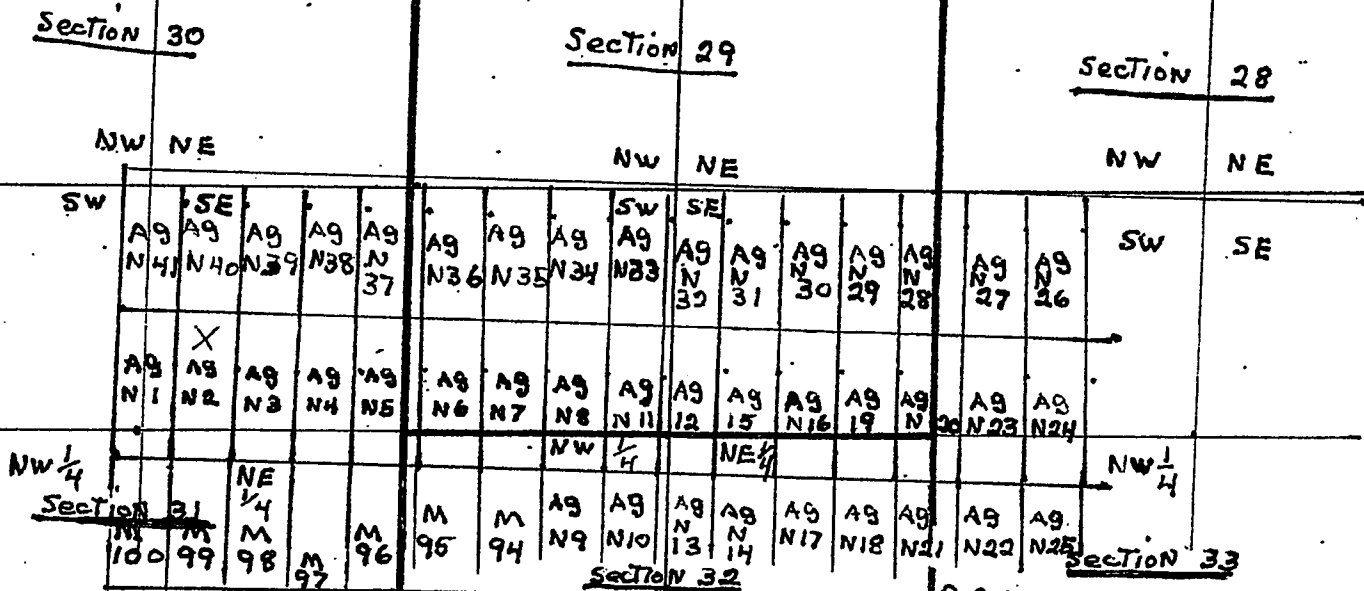 Section 30
Section 29
Section 28
NW NE
NW NE
NW NE
SW SE
SW SE
SW SE
Ag N 41
Ag N40
Ag N39
Ag N38
Ag N 37
Ag N36
Ag N35
Ag N34
Ag N33
Ag N 32
Ag N 31
Ag N 30
Ag N 29
Ag N 28
Ag N 27
Ag N 26
X
Ag N 1
Ag N2
Ag N3
Ag N4
Ag N5
Ag N6
Ag N7
Ag N8
Ag N11
Ag 12
Ag 15
Ag N16
Ag 19
Ag N 20
Ag N23
Ag N24
NW 1/4
NE 1/4
NW 1/4
NE 1/4
NW 1/4
Section 31
M 100
M 99
M 98
M 97
M 96
M 95
M 94
Ag N9
Ag N10
Ag N 13
Ag N 14
Ag N17
Ag N18
Ag N21
Ag N22
Ag N25
Section 32
Section 33